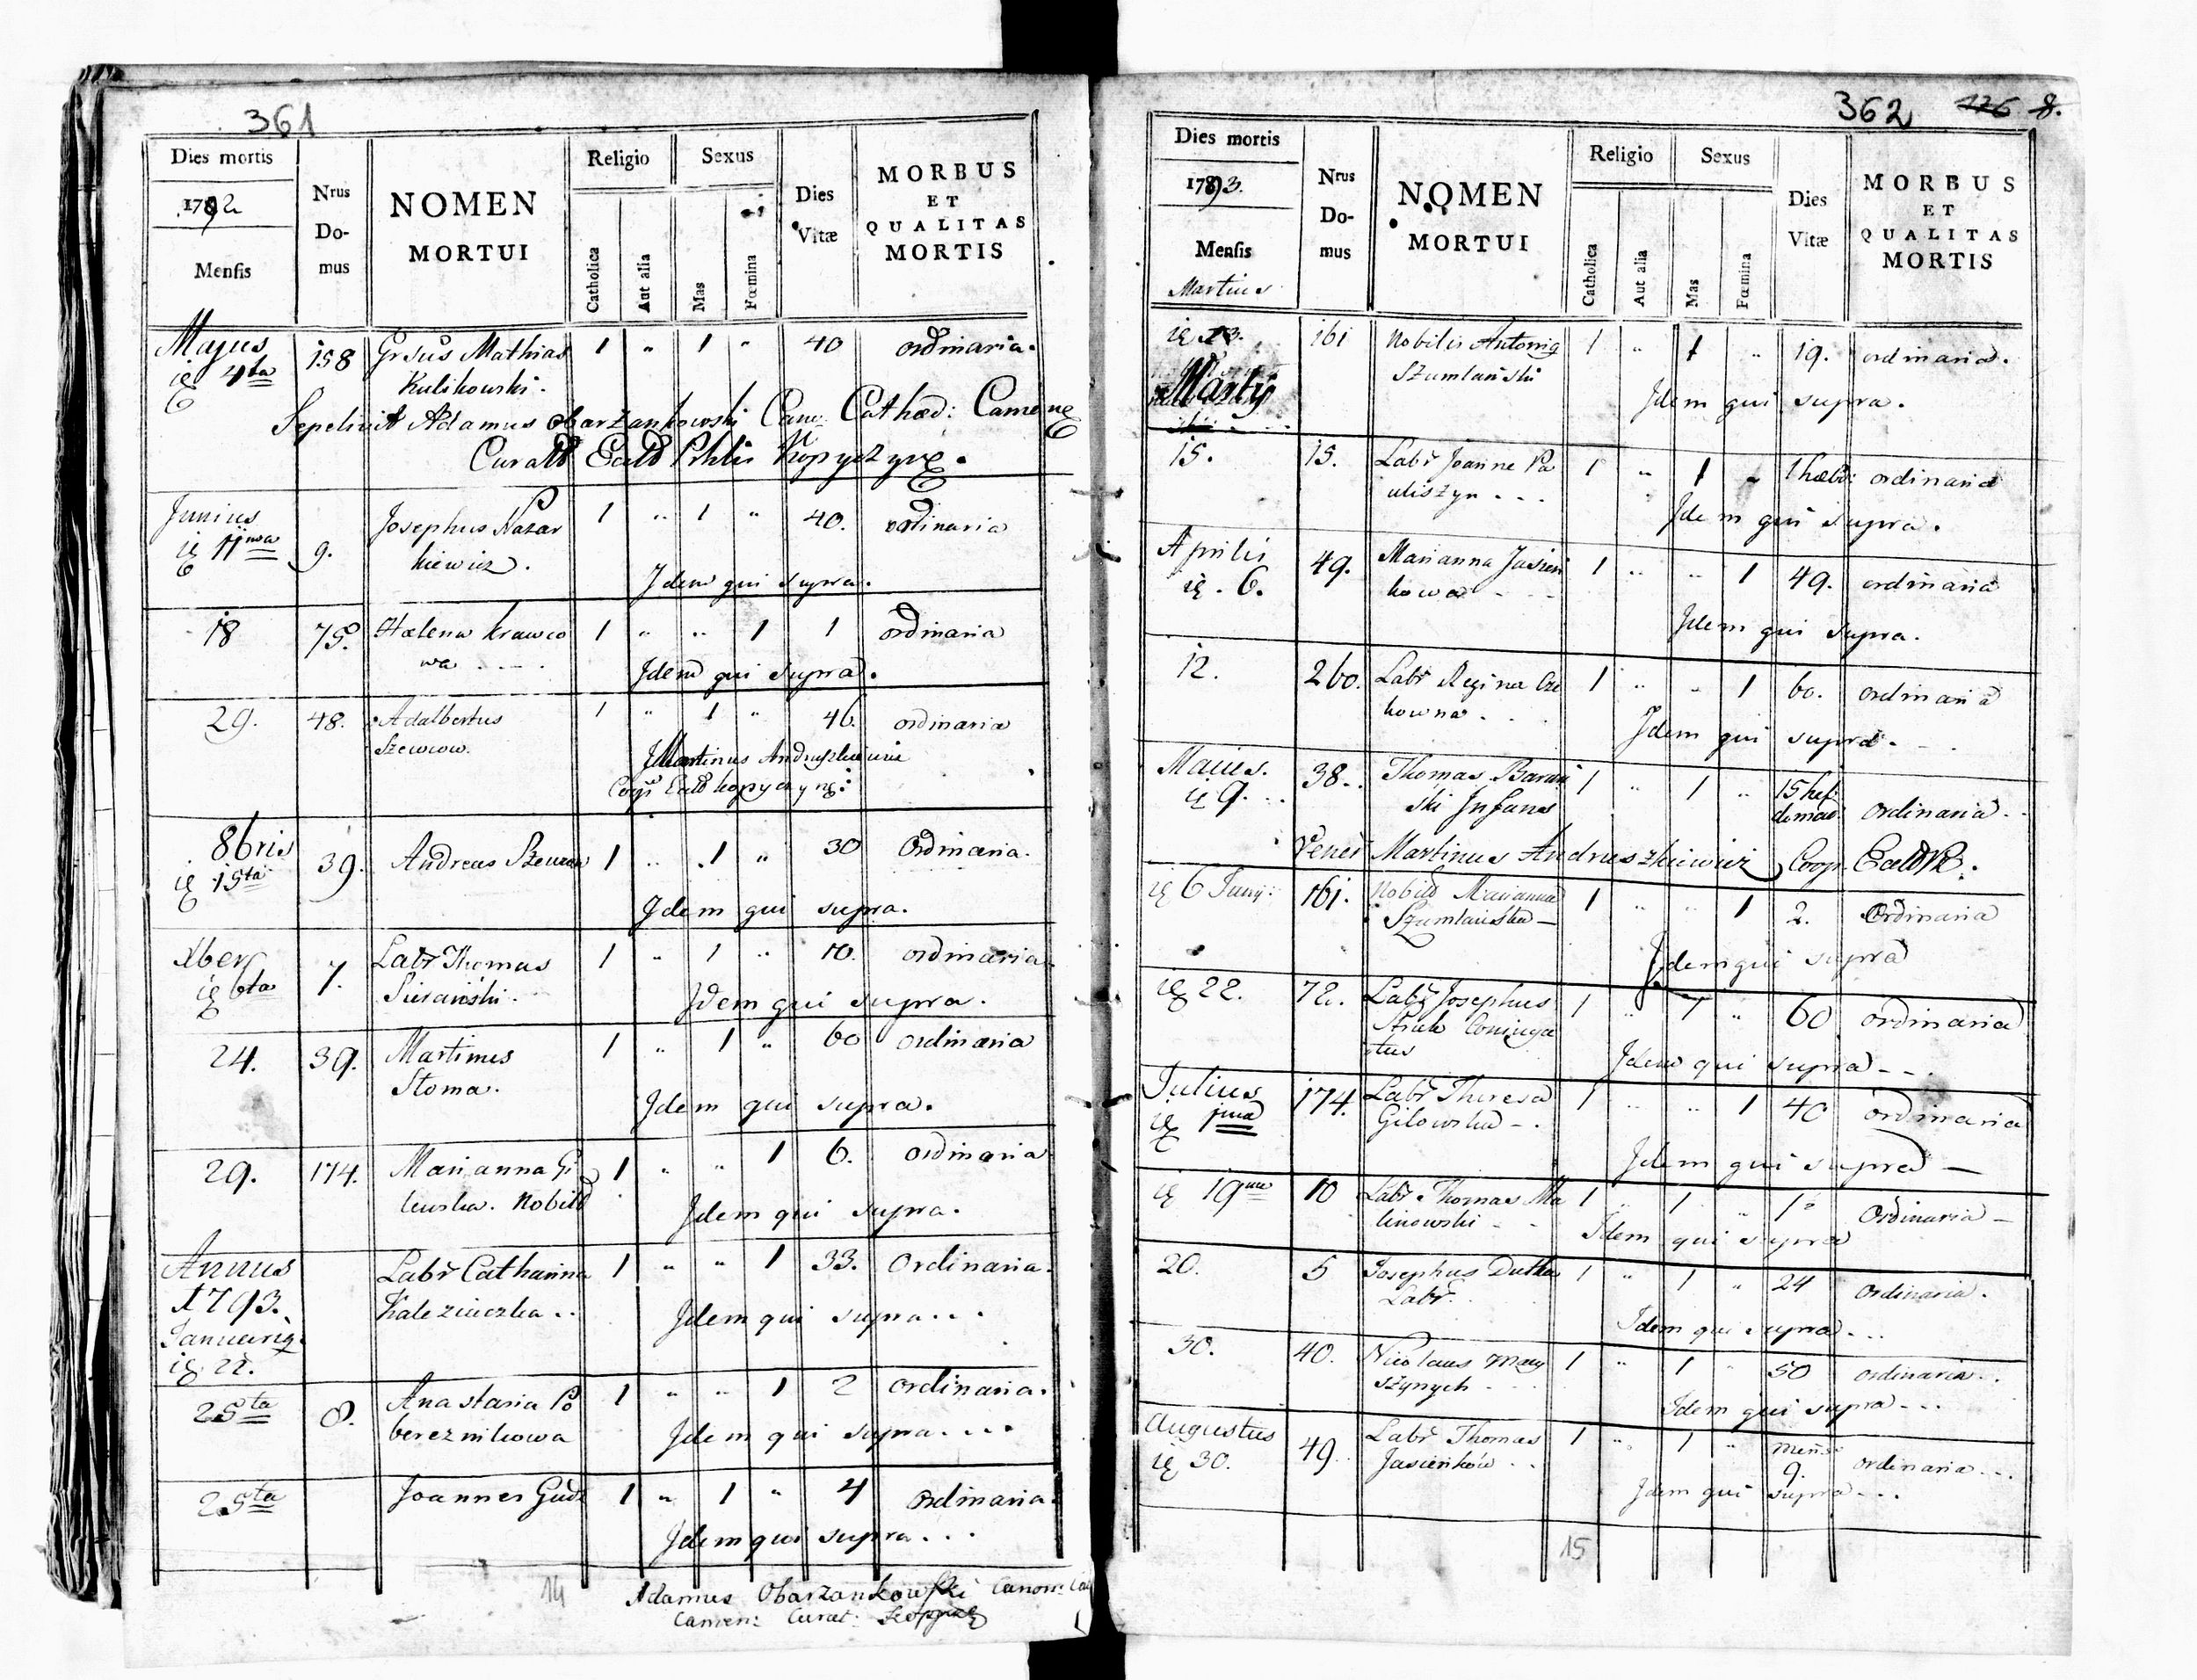 361
Dies mortis
1792
Mensis
Nrus
Do-
mus
NOMEN
MORTUI
Religio
Catholica
Aut alia
Sexus
Mas
Fœmina
Dies
Vitæ
MORBUS
ET
QUALITAS
MORTIS
Majus 158 Grsus Mathias 1 " 1 " 40 ordinaria.
4ta Kulikowski.
Sepelivit Adamus Obarzankowski Can: Cathed: Camene
Curat Eccl Kopyczync.
Junius Josephus Nazar 1 " 1 " 40. ordinaria
11ma 9. kiewicz.
Idem qui supra.
18 75. Helena Krawco 1 " " 1 1 ordinaria
wa . . . .
Idem qui supra.
29. 48. Adalbertus 1 " 1 " 46. ordinaria
Szewcow.
Martinus Andruszkiewicz
Eccl Kopyczync:
8bris 39. Andreas Szewcow 1 " 1 " 30 Ordinaria.
15ta
Idem qui supra.
Xber 7. Labr Thomas 1 " 1 " 70. ordinaria
6ta
Idem qui supra.
24. 39. Martinus 1 " 1 " 60 ordinaria
Stoma.
Idem qui supra.
29. 174. Marianna Gi 1 " " 1 6. ordinaria
lewska. Nobil
Idem qui supra.
Annus Labr Catharina 1 " " 1 33. Ordinaria.
1793. . .
Januarius
22.
Idem qui supra . . .
25ta 8. Anastasia Po 1 " " 1 2 ordinaria.
bereznikowa
Idem qui supra . . .
25ta Joannes Gudz 1 " 1 " 4 Ordinaria.
Idem qui supra . . .
14
Adamus Obarzankowski Canon: Cat
Camen: Curat:
362 126 8.
Dies mortis
1793.
Mensis
Martius
Nrus
Do-
mus
NOMEN
MORTUI
Religio
Catholica
Aut alia
Sexus
Mas
Fœmina
Dies
Vitæ
MORBUS
ET
QUALITAS
MORTIS
161 Nobilis Antonius 1 " 1 " 19. ordinaria.
Martij Szumlański
Idem qui supra.
15. 15. Labr Joannes Pa 1 " 1 " ordinaria
uliszyn . . .
Idem qui supra.
Aprilis 49. Marianna Jasień 1 " " 1 49. ordinaria
6. kowa
Idem qui supra.
12. 260. Labr Regina 1 " " 1 60. ordinaria
kowna . . .
Idem qui supra.
Maius. 38. Thomas 1 " 1 " 15 heb
9. ski Infans domad. ordinaria.
Martinus Andruszkiewicz Coop.
6 Junij: 161. Nobil Marianna 1 " " 1 2. Ordinaria
Szumlańska
Idem qui supra
22. 72. Labr Josephus 1 " 1 " 60 ordinaria
Coniuga
tus
Idem qui supra
Julius 174. Labr Theresa 1 " " 1 40 ordinaria
1ma Gilowska
Idem qui supra
19 10 Labr Thomas Ma 1 " 1 " Ordinaria
linowski
Idem qui supra
20. 5 Josephus Dutka 1 " 1 " 24 ordinaria.
Labr.
Idem qui supra . . .
30. 40. Nicolaus 1 " 1 " 50 ordinaria.
Idem qui supra . . .
Augustus 49. Labr Thomas 1 " 1 " mens: ordinaria . . .
30. Jasieńków . . 9.
Idem qui supra . . .
15